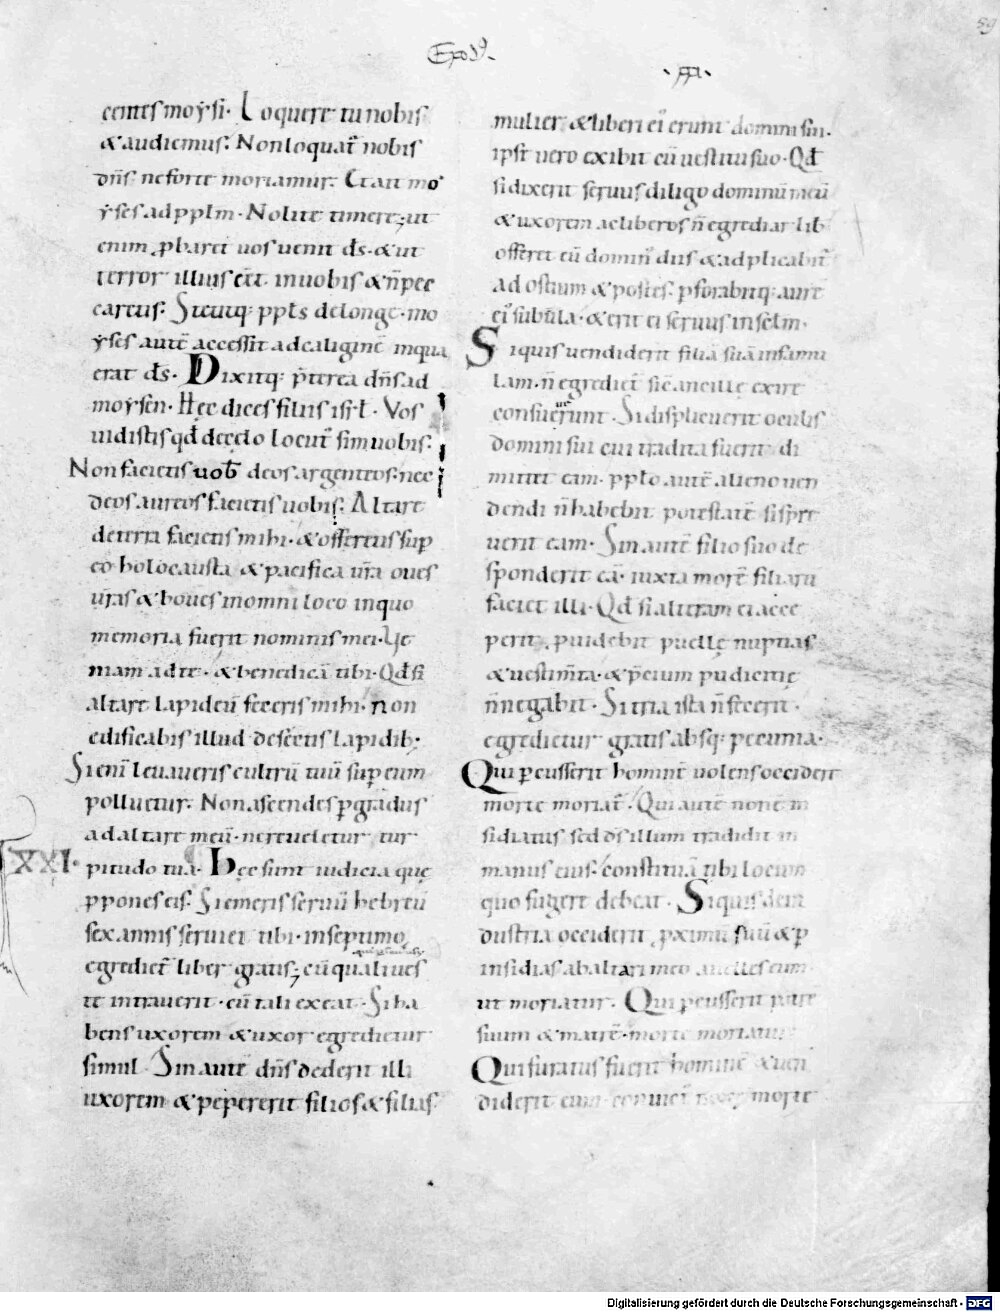 59
Exod9.
centes moysi. Loquere tu nobis
& audiemus. Non loquat̄ nobis
dn̄s ne forte moriamur. Et ait mo
yses ad pplm. Nolite timere; ut
enim ꝓbaret uos uenit ds̄. & ut
terror illius eēt in uobis & n̄ pec
caretis. Stetitq; ppl̄s de longe. mo
yses autē accessit ad caliginē in qua
erat ds̄. Dixitq; p̄terea dn̄s ad
moysen. Hęc dices filiis isrl̄. Vos
uidistis qd̄ de cęlo locut᾽ sim uobis.
Non facietis uob̄ deos argenteos. nec
deos aureos facietis uobis. Altare
de terra facietis mihi. & offeretis suꝑ
eo holocausta & pacifica ur̄a oues
ur̄as & boues in omni loco in quo
memoria fuerit nominis mei. Ue
niam ad te. & benedicā tibi. Qd̄ si
altare lapideū feceris mihi. non
edificabis illud de sectis lapidib;
Si enī leuaueris cultrū tuū suꝑ eum
polluetur. Non ascendes ꝑ gradus
ad altare meū. ne reueletur tur
XXI.
pitudo tua. Hęc sunt iudicia quę
ꝓpones eis. Si emeris seruū hebreū
sex annis seruiet tibi. in septimo
egrediet᾽ liber gratis; cū quali ues
te intrauerit. cū tali exeat. Si ha
bens uxorem & uxor egredietur
simul. Sin autē dn̄s dederit illi
uxorem & pepererit filios & filias.
mulier & liberi ei᾽ erunt domini sui.
ipse uero exibit cū uestitu suo. Qd̄
si dixerit seruus diligo dominū meū
& uxorem ac liberos n̄ egrediar lib
offeret eū domin᾽ diis & adplicabit᾽
ad ostium & postes. ꝑforabitq; aurē
ei᾽ subula. & erit ei seruus in sclm̄.
Si quis uendiderit filiā suā in famu
lam. n̄ egrediet᾽ sic̄ ancillę exire
consueuerunt. Si displicuerit oculis
domini sui cui tradita fuerit di
mittet eam. pplo autē alieno uen
dendi n̄ habebit potestatē si spre
uerit eam. Sin autē filio suo de
sponderit eā. iuxta morē filiarū
faciet illi. Qd̄ si alteram ei acce
perit, ꝓuidebit puellę nuptias
& uestim̄ta. & p̄cium pudicitię
n̄ negabit. Si tria ista n̄ fecerit.
egredietur gratis absq; pecunia.
Qui ꝑcusserit hominē uolens occidere
morte moriat᾽. Qui autē non ē in
sidiatus sed ds̄ illum tradidit in
manus eius. constituā tibi locum
quo fugere debeat. Si quis de in
dustria occiderit ꝓximū suū & ꝑ
insidias ab altari meo auelles eum.
ut moriatur. Qui ꝑcusserit patrē
suum & matrē. morte moriatur.
Qui furatus fuerit hominē & uen
diderit eum morte
Digitalisierung gefördert durch die Deutsche Forschungsgemeinschaft - DFG